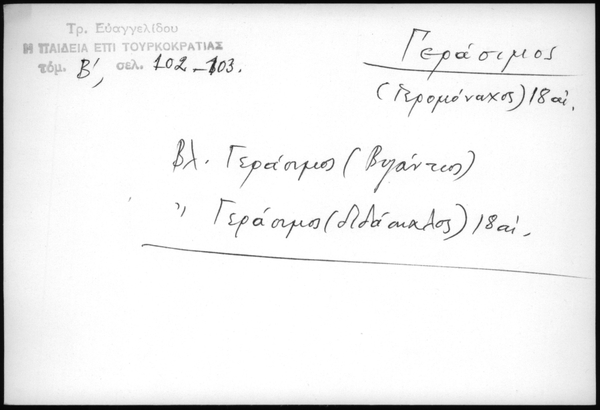 Τρ. Εὐαγγελίδου
Η ΠΑΙΔΕΙΑ ΕΠΙ ΤΟΥΡΚΟΚΡΑΤΙΑΣ
τόμ. Β΄, σελ. 102-103.
Γεράσιμος
(Ἱερομόναχος) 18 αἰ.
Βλ. Γεράσιμος (Βυζάντιος)
〃 Γεράσιμος (διδάσκαλος) 18 αἰ.